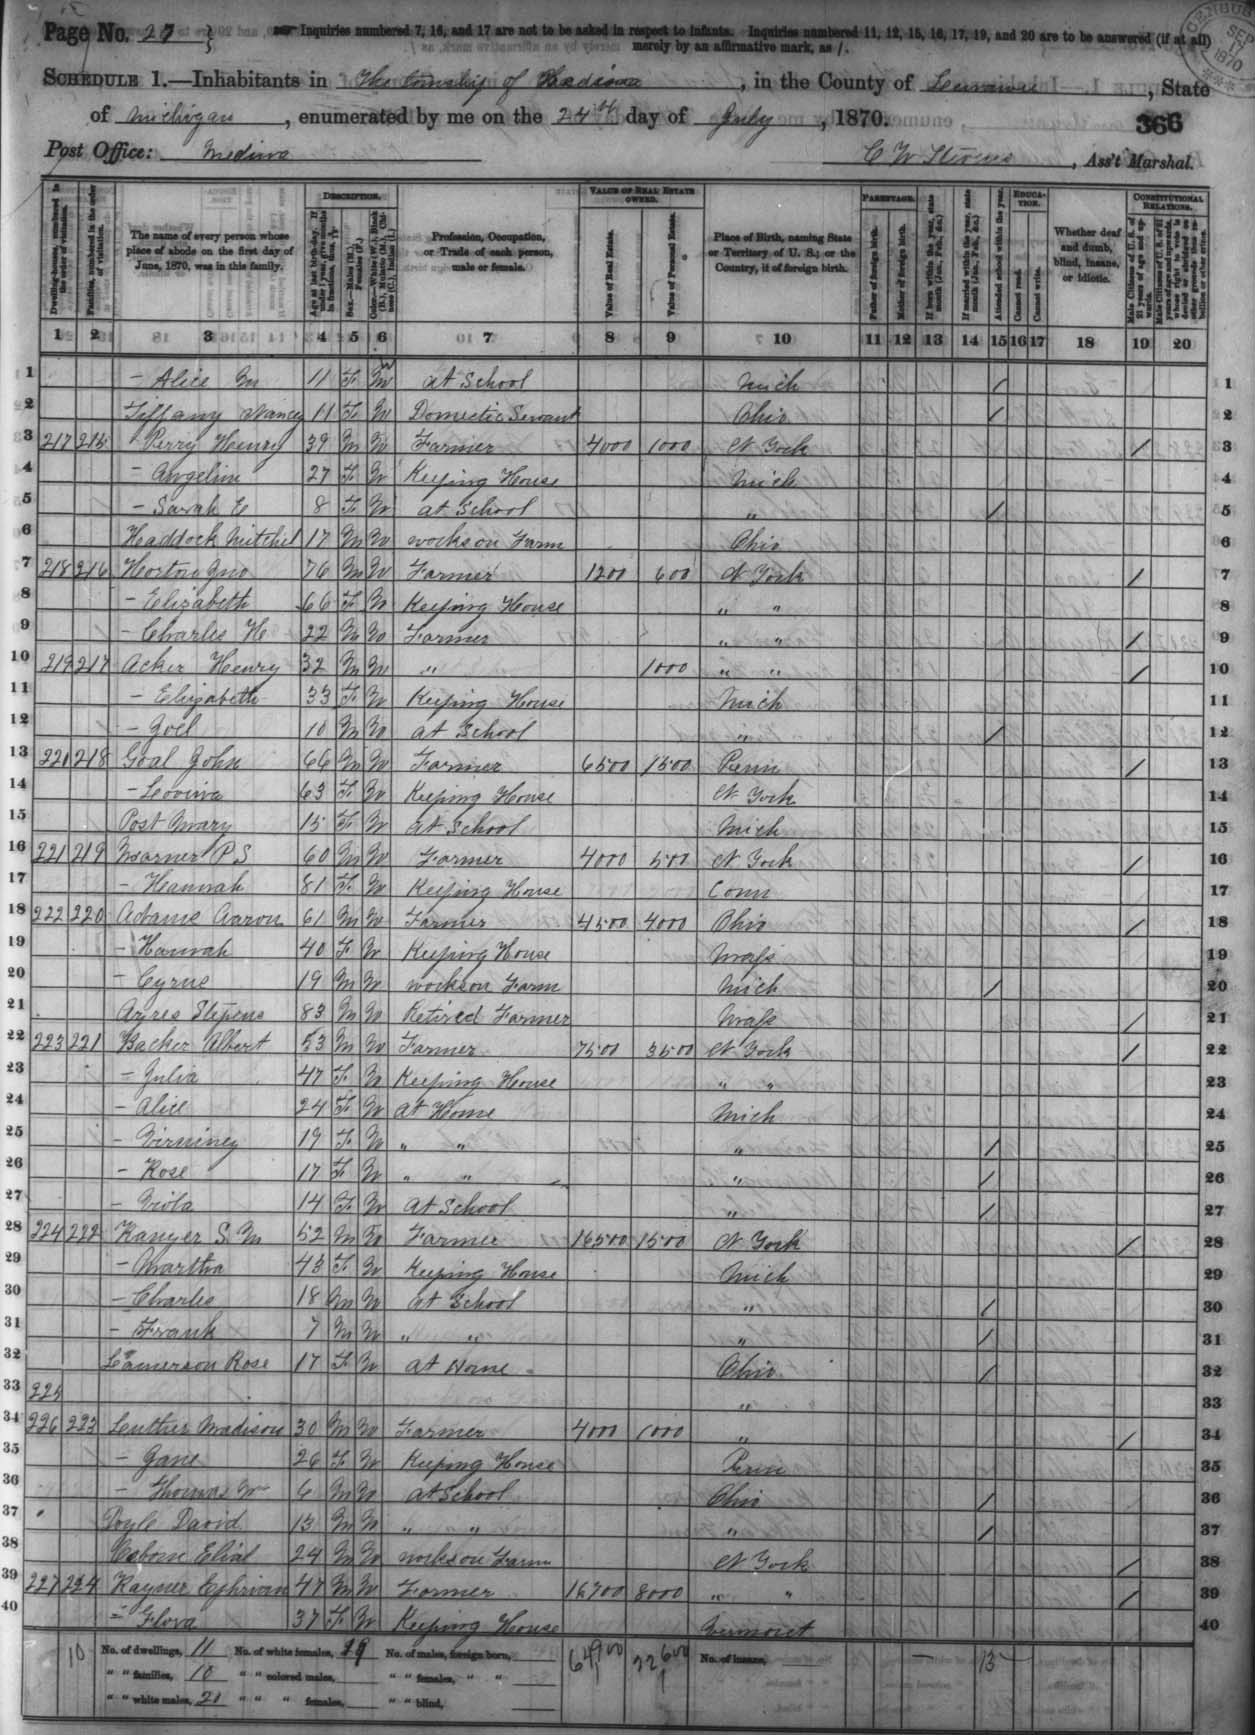 Page No. 27
Inquiries numbered 7, 16, and 17 are not to be asked in respect to infants. Inquiries numbered 11, 12, 15, 16, 17, 19, and 20 are to be answered (if at all)
merely by an affirmative mark, as /.
CENSUS SEP 17 1870
SCHEDULE 1.—Inhabitants in The township of Madison, in the County of Lenawee, State
of Michigan, enumerated by me on the 24th day of July, 1870.
366
Post Office: Medina
C W Stevens, Ass't Marshal.
Dwelling-houses, numbered in the order of visitation.
Families, numbered in the order of visitation.
The name of every person whose place of abode on the first day of June, 1870, was in this family.
DESCRIPTION.
Age at last birth-day. If under 1 year, give months in fractions, thus, 3/12
Sex.—Males (M.), Females (F.)
Color.—White (W.), Black (B.), Mulatto (M.), Chinese (C.), Indian (I.)
Profession, Occupation, or Trade of each person, male or female.
VALUE OF REAL ESTATE OWNED.
Value of Real Estate.
Value of Personal Estate.
Place of Birth, naming State or Territory of U. S.; or the Country, if of foreign birth.
PARENTAGE.
Father of foreign birth.
Mother of foreign birth.
If born within the year, state month (Jan., Feb., &c.)
If married within the year, state month (Jan., Feb., &c.)
Attended school within the year.
EDUCATION.
Cannot read.
Cannot write.
Whether deaf and dumb, blind, insane, or idiotic.
CONSTITUTIONAL RELATIONS.
Male Citizens of U. S. of 21 years of age and upwards.
Male Citizens of U. S. of 21 years of age and upwards, whose right to vote is denied or abridged on other grounds than rebellion or other crime.
1 2 3 4 5 6 7 8 9 10 11 12 13 14 15 16 17 18 19 20
1 – Alice M 11 F W at School Mich / 1
2 Tiffany Nancy 11 F W Domestic Servant Ohio / 2
3 217 215 Perry Henry 39 M W Farmer 4000 1000 N York / 3
4 – Angeline 27 F W Keeping House Mich 4
5 – Sarah E 8 F W at School " / 5
6 Haddock Mitchel 17 M W works on Farm Ohio 6
7 218 216 Horton Jno 76 M W Farmer 1200 600 N York / 7
8 – Elizabeth 66 F W Keeping House " " 8
9 – Charles H 22 M W Farmer " " / 9
10 219 217 Acker Henry 32 M W " 1000 " " / 10
11 – Elizabeth 33 F W Keeping House Mich 11
12 – Joel 10 M W at School " / 12
13 220 218 Goal John 66 M W Farmer 6500 1500 Penn / 13
14 – Lovina 63 F W Keeping House N York 14
15 Post Mary 15 F W at School Mich 15
16 221 219 Warner P S 60 M W Farmer 4000 500 N York / 16
17 – Hannah 81 F W Keeping House Conn 17
18 222 220 Adams Aaron 61 M W Farmer 4500 4000 Ohio / 18
19 – Hannah 40 F W Keeping House Mass 19
20 – Cyrus 19 M W works on Farm Mich / 20
21 Ayres Stepens 83 M W Retired Farmer Mass / 21
22 223 221 Backer Albert 53 M W Farmer 7500 3500 N York / 22
23 – Julia 47 F W Keeping House " " 23
24 – Alice 24 F W At Home Mich 24
25 – 19 F W " " " / 25
26 – Rose 17 F W " " " / 26
27 – Viola 14 F W At School " / 27
28 224 222 S. M 52 M W Farmer 16500 1500 N York / 28
29 – Martha 43 F W Keeping House Mich 29
30 – Charles 18 M W at School " / 30
31 – Frank 7 M W " " " / 31
32 Lamerson Rose 17 F W At Home Ohio / 32
33 225 " 33
34 226 223 Luther Madison 30 M W Farmer 4000 1000 " / 34
35 – Jane 26 F W Keeping House Penn 35
36 – Thomas 6 M W at School Ohio / 36
37 Doyle David 13 M W " " " / 37
38 Osborn 24 M W works on Farm N York / 38
39 227 224 47 M W Farmer 16700 8000 " " / 39
40 – Flora 37 F W Keeping House Vermont 40
10 No. of dwellings, 11 No. of white females, 19 No. of males, foreign born, 64900 22600 No. of insane, 13
" " families, 10 " " colored males, " " females, " "
" " white males, 20 " " " females, " " blind,